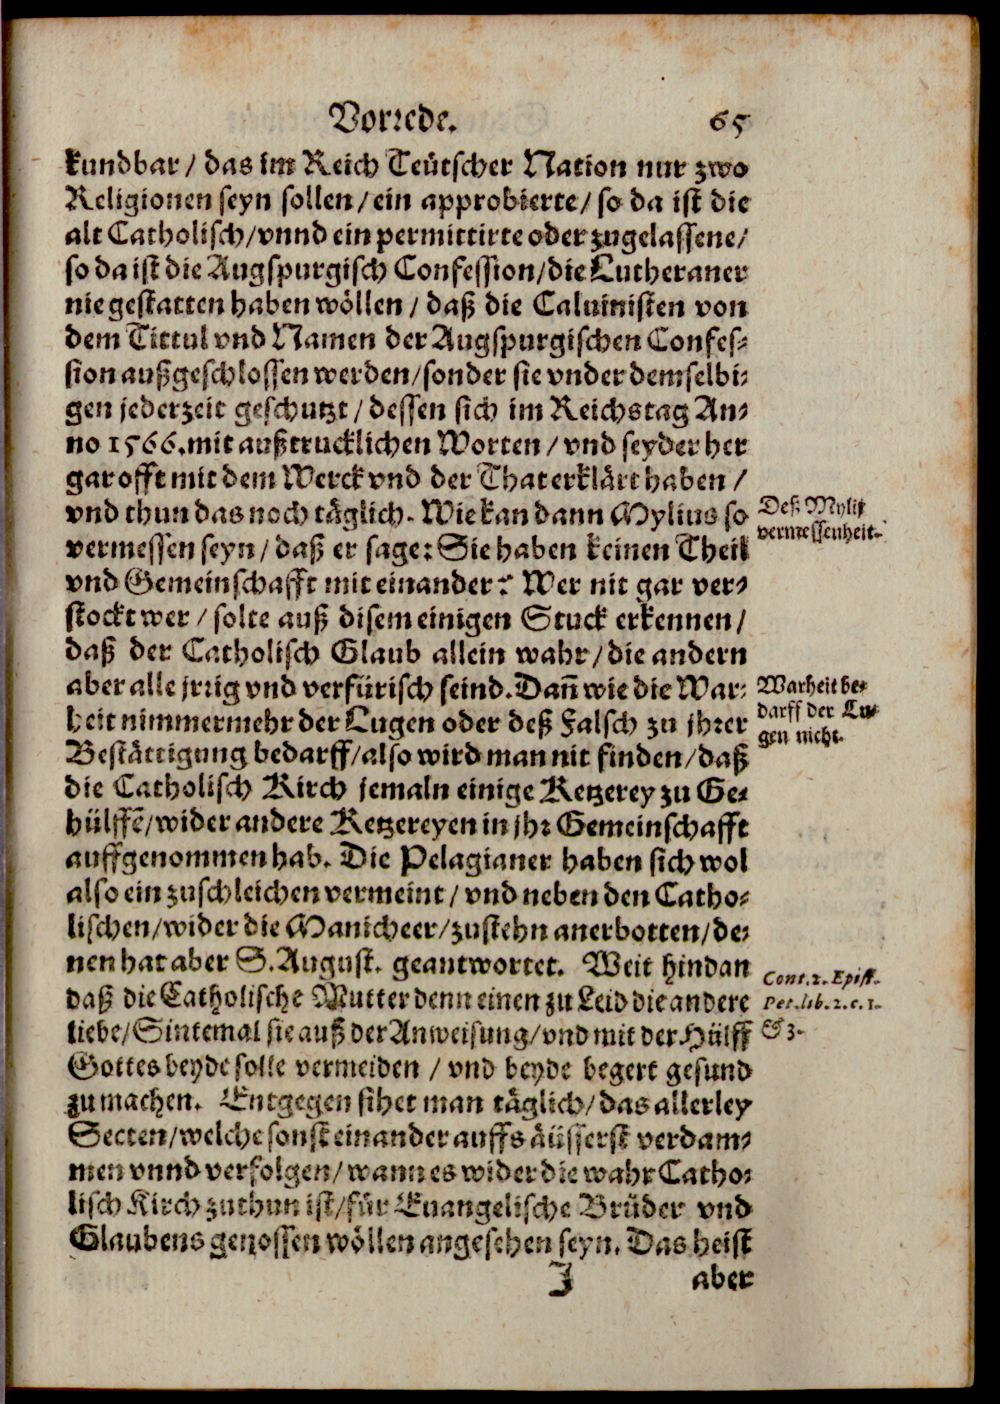 Vorrede. 65
kundbar / das im Reich Teütscher Nation nur zwo
Religionen seyn sollen / ein approbierte / so da ist die
alt Catholisch / vnnd ein permittirte oder zugelassene /
so da ist die Augspurgisch Confession / die Lutheraner
nie gestatten haben wöllen / daß die Caluinisten von
dem Tittul vnd Namen der Augspurgischen Confes-
sion außgeschlossen werden / sonder sie vnder demselbi-
gen jederzeit geschutzt / dessen sich im Reichstag An-
no 1566. mit außtrucklichen Worten / vnd seyder her
gar offt mit dem Werck vnd der That erklärt haben /
vnd thun das noch täglich. Wie kan dann Mylius so
Deß Mylij
vermessen seyn / daß er sage: Sie haben keinen Theil
vermessenheit.
vnd Gemeinschafft mit einander? Wer nit gar ver-
stockt wer / solte auß disem einigen Stuck erkennen /
daß der Catholisch Glaub allein wahr / die andern
aber alle jrrig vnd verfürisch seind. Dañ wie die War-
Warheit be-
heit nimmermehr der Lugen oder deß Falsch zu jhrer
darff der Lu-
gen nicht.
Bestättigung bedarff / also wird man nit finden / daß
die Catholisch Kirch jemaln einige Ketzerey zu Ge-
hülffẽ / wider andere Ketzereyen in jhr Gemeinschafft
auffgenommen hab. Die Pelagianer haben sich wol
also ein zuschleichen vermeint / vnd neben den Catho-
lischen / wider die Manicheer / zustehn anerbotten / de-
nen hat aber S. August. geantwortet. Weit hindan
Cont. 2. Epist.
daß die Catholische Mutter denn einen zu Leid die andere
Pel. lib. 2. c. 1.
liebe / Sintemal sie auß der Anweisung / vnd mit der Hülff
& 3.
Gottes beyde solle vermeiden / vnd beyde begert gesund
zu machen. Entgegen sihet man täglich / das allerley
Secten / welche sonst einander auffs äüsserst verdam-
men vnnd verfolgen / wann es wider die wahr Catho-
lisch Kirch zuthun ist / für Euangelische Brüder vnd
Glaubens genossen wöllen angesehen seyn. Das heist
J aber